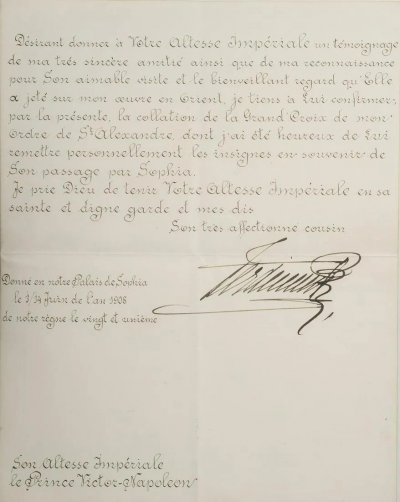 Désirant donner à Votre Altesse Impériale un témoignage
de ma très sincère amitié ainsi que de ma reconnaissance
pour Son aimable visite et le bienveillant regard qu'Elle
a jeté sur mon œuvre en Orient, je tiens à Lui confirmer,
par la présente, la collation de la Grand'Croix de mon
Ordre de St Alexandre, dont j'ai été heureux de Lui
remettre personnellement les insignes en souvenir de
Son passage par Sophia.
Je prie Dieu de tenir Votre Altesse Impériale en sa
sainte et digne garde et mes dis
Son très affectionné cousin
Ferdinand
Donné en notre Palais de Sophia
le 1/14 Juin de l'an 1908
de notre règne le vingt et unième
Son Altesse Impériale
le Prince Victor-Napoléon